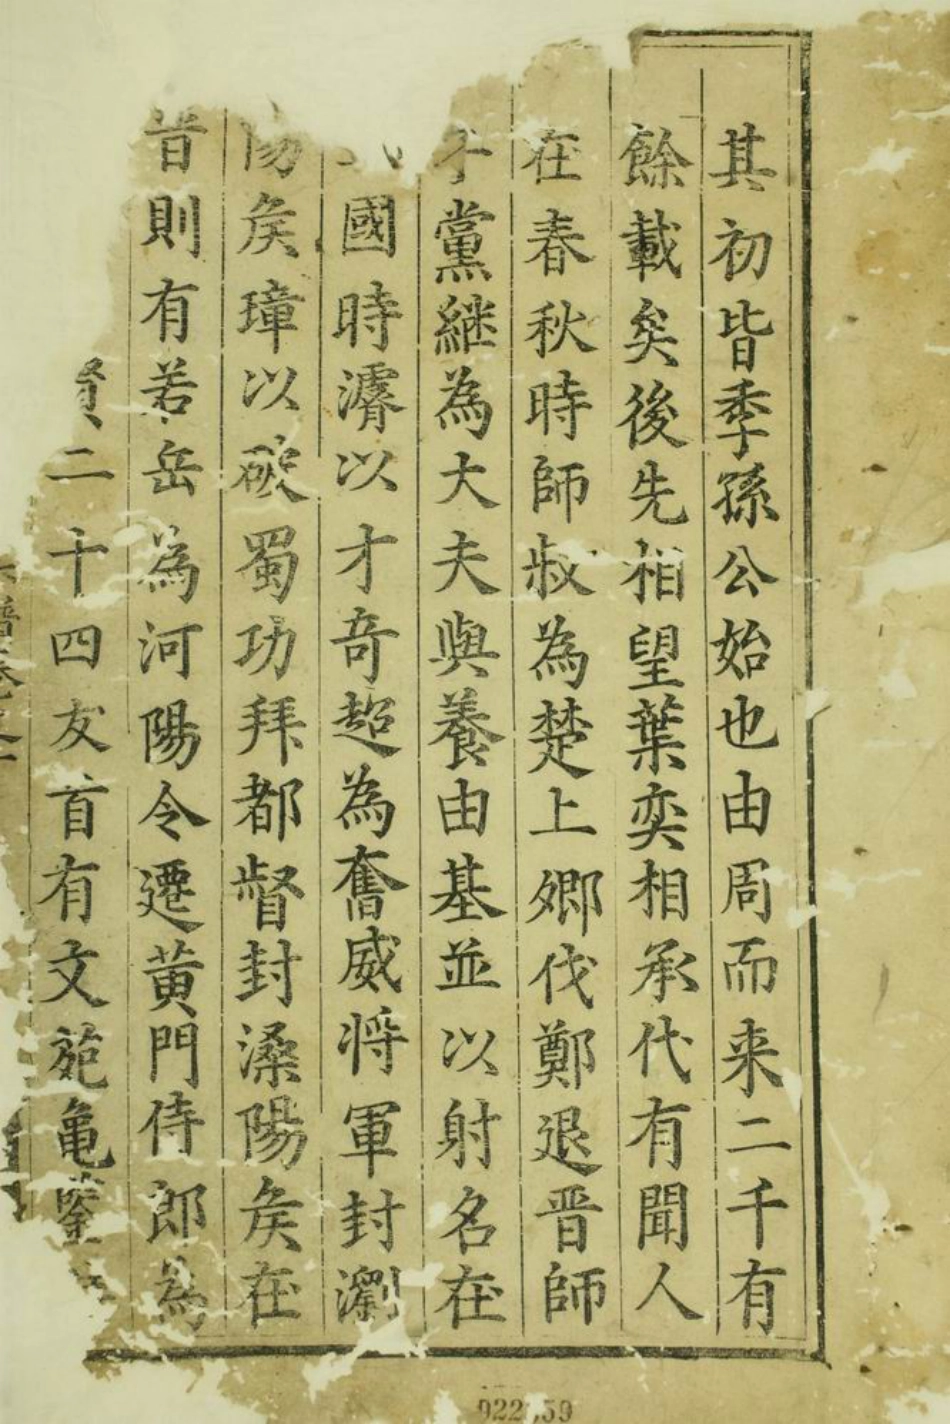 其初皆季孫公始也由周而来二千有
餘載矣後先相望葉奕相承代有聞人
在春秋時師叔為楚上卿伐鄭退晋師
子黨継為大夫與養由基並以射名在
國時濬以才竒超為奮威将軍封瀏
陽矦璋以破蜀功拜都督封溧陽矦在
晋則有若岳為河陽令遷黄門侍郎為
賢二十四友首有文苑亀鑒
譜卷之一
022,59